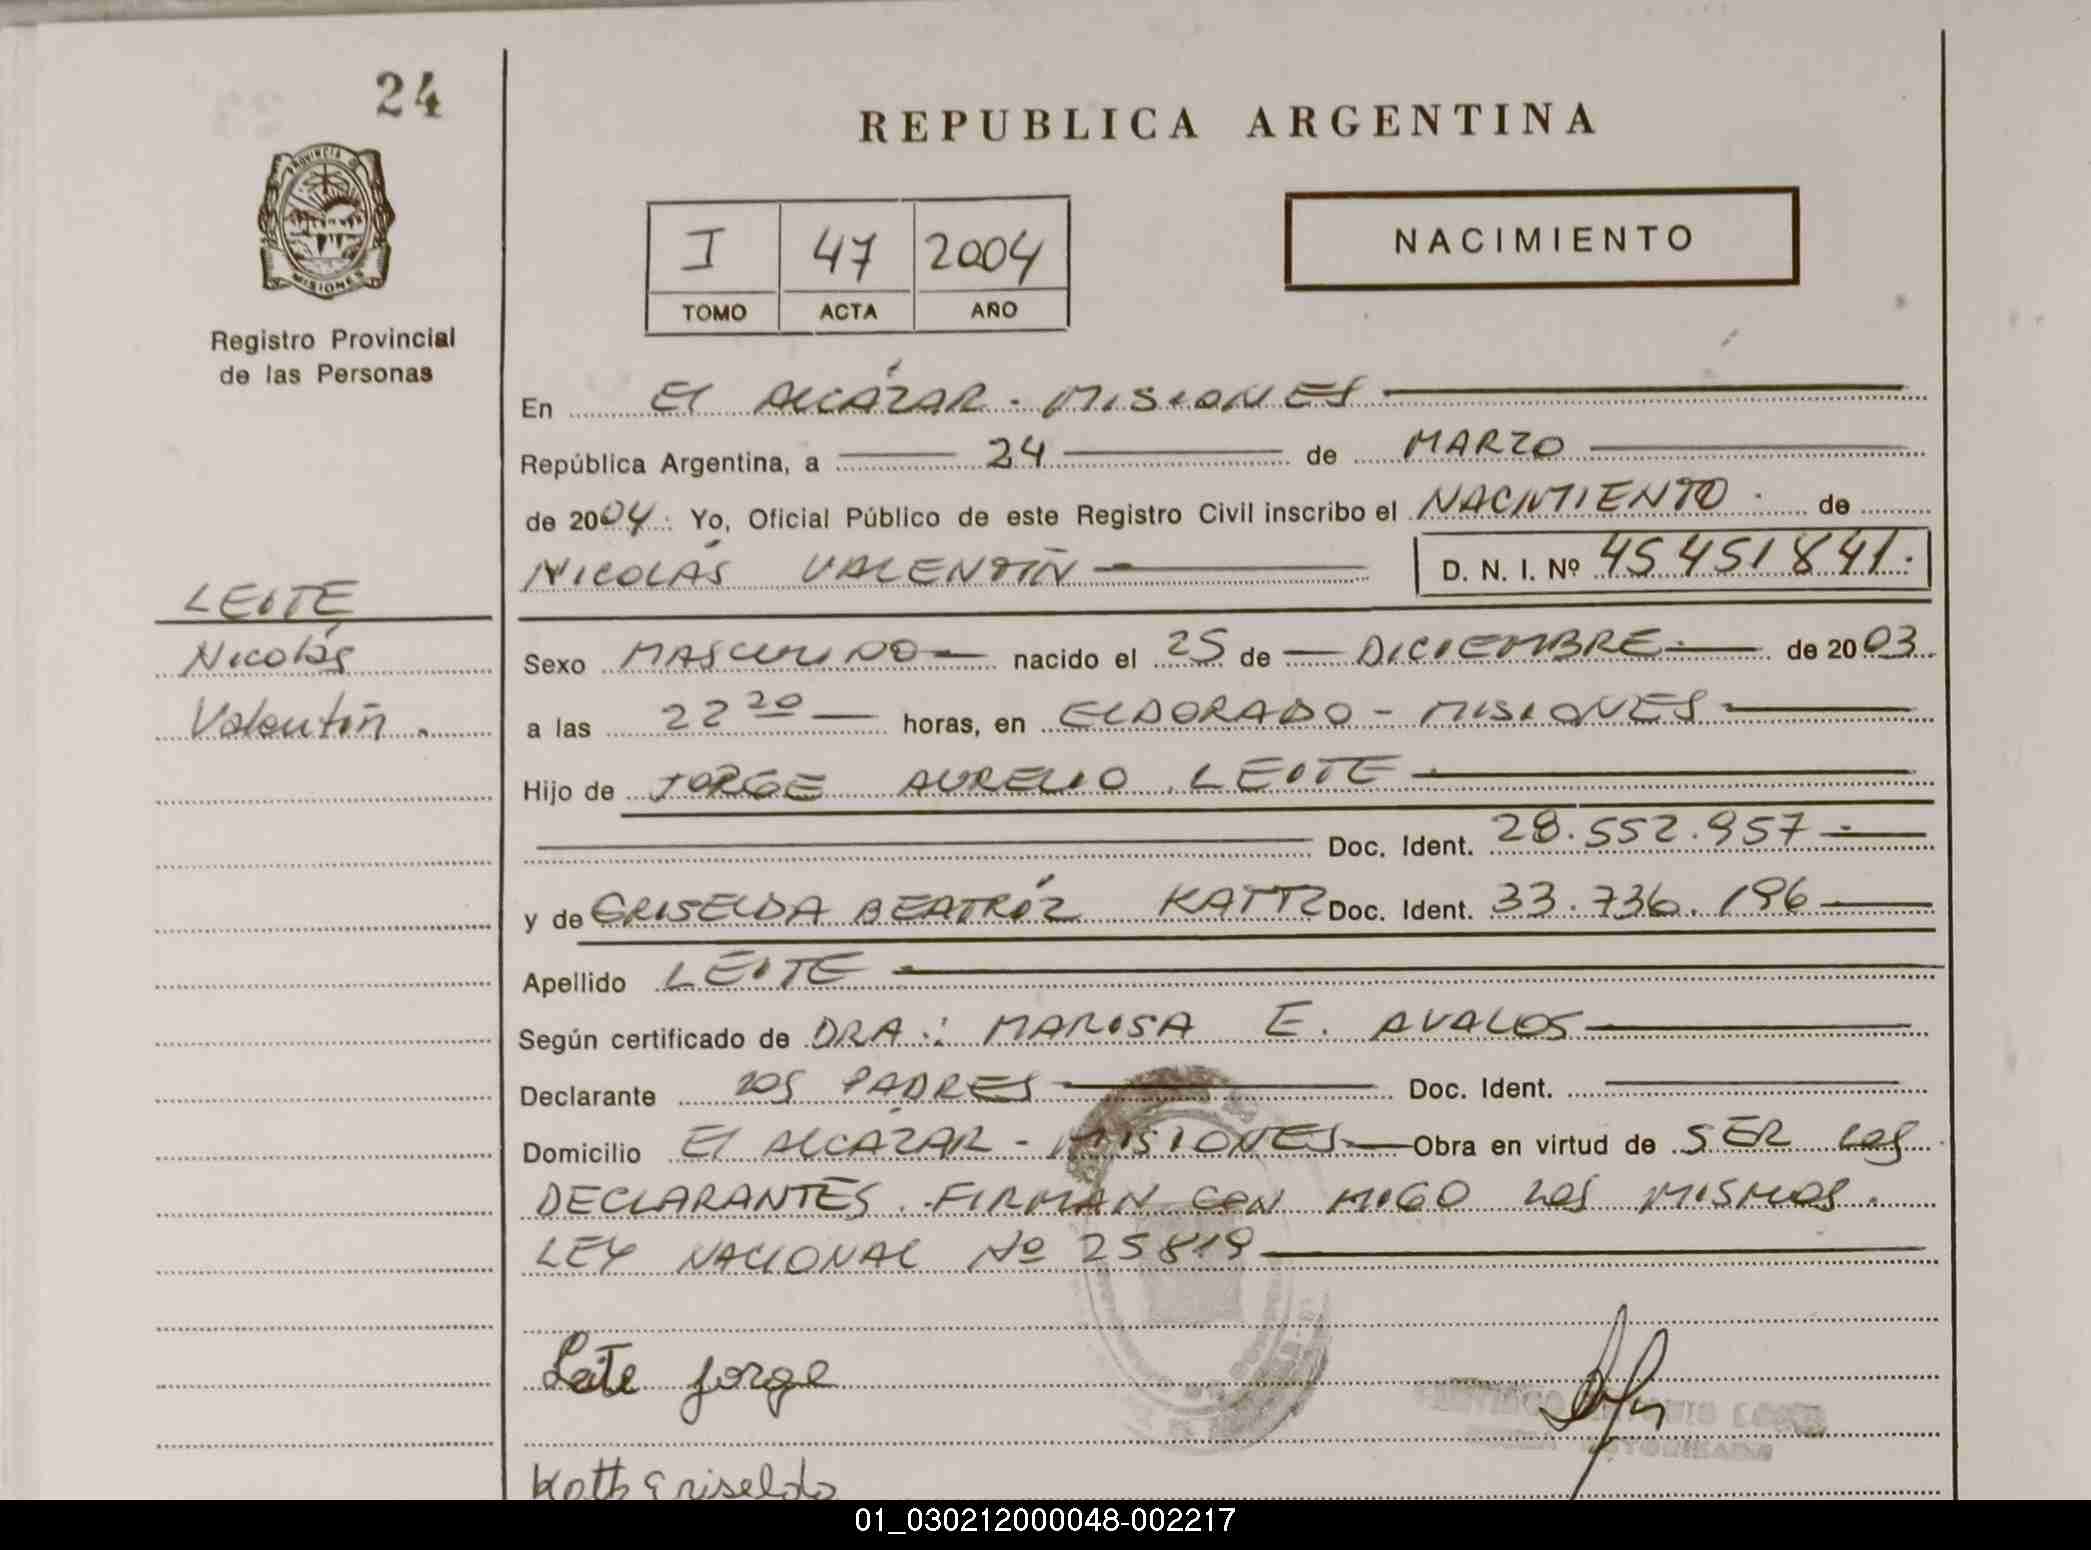 24
PROVINCIA DE
MISIONES
Registro Provincial
de las Personas
REPUBLICA ARGENTINA
I 47 2004
TOMO ACTA AÑO
NACIMIENTO
En El ALCÁZAR - MISIONES
República Argentina, a 24 de MARZO
de 2004. Yo, Oficial Público de este Registro Civil inscribo el NACIMIENTO de
NICOLÁS VALENTÍN D. N. I. Nº 45451841.
LEITE
Nicolás
Valentín.
Sexo MASCULINO nacido el 25 de DICIEMBRE de 2003
a las 22 20 horas, en ELDORADO - MISIONES
Hijo de JORGE AURELIO LEITE
Doc. Ident. 28.552.957
y de GRISELDA BEATRÍZ KATTZ Doc. Ident. 33.736.196
Apellido LEITE
Según certificado de DRA: MARISA E. AVALOS
Declarante LOS PADRES Doc. Ident.
Domicilio El ALCÁZAR - MISIONES Obra en virtud de SER LOS
DECLARANTES. FIRMAN CON MIGO LOS MISMOS.
LEY NACIONAL Nº 25819
Leite Jorge
Katt Griselda
01_030212000048-002217